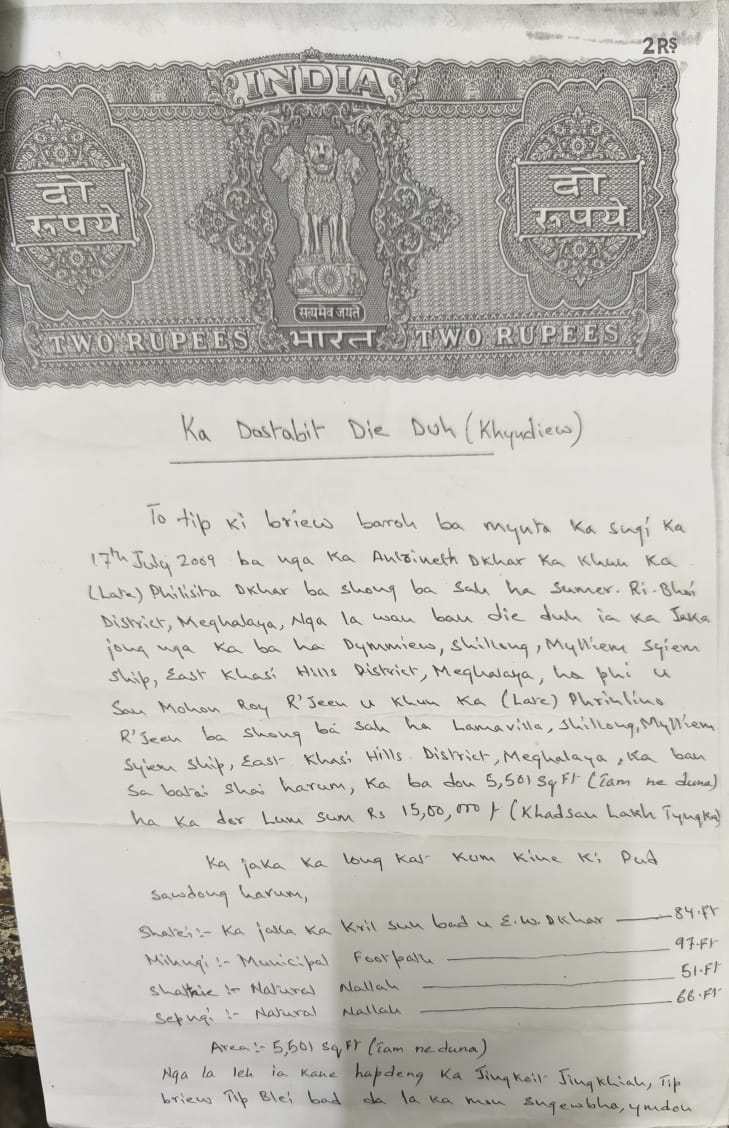 2Rs
INDIA
दो
रूपये
दो
रूपये
सत्यमेव जयते
TWO RUPEES भारत TWO RUPEES
Ka Dastabit Die Duh (Khyndiew)
To tip ki briew baroh ba mynta ka sngi ka
17th July 2009 ba nga ka Antrineth Dkhar ka khun ka
(Late) Philisita Dkhar ba shong ba sah ha Sumer. Ri-Bhoi
District, Meghalaya, Nga la wan ban die duh ia ka Jaka
jong nga ka ba ha Dymmiew, Shillong, Mylliem Syiem
ship, East Khasi Hills District, Meghalaya, ha phi u
Son Mohon Roy R'Jeen u khun ka (Late) Phrinlino
R'Jeen ba shong ba sah ha Lamavilla, Shillong, Mylliem
Syiem ship, East Khasi Hills District, Meghalaya, ka ban
sa batai shai harum, ka ba don 5,501 Sq Ft (Tam ne duna)
ha ka dor Lum sum Rs 15,00,000/- (Khadsan Lakh Tyngka)
Ka jaka ka long kat kum kine ki pud
sawdong harum,
Shatei :- Ka jaka ka Kril suh bad u E.W. Dkhar 84.Ft
Mihngi :- Municipal Footpath 97.Ft
Shathie :- Natural Nallah 51.Ft
Sepngi :- Natural Nallah 66.Ft
Area :- 5,501 Sq Ft (Tam ne duna)
Nga la leh ia kane hapdeng ka Jingkoit Jingkhiah, Tip
briew Tip Blei bad da la ka mon sngewbha, ymdon